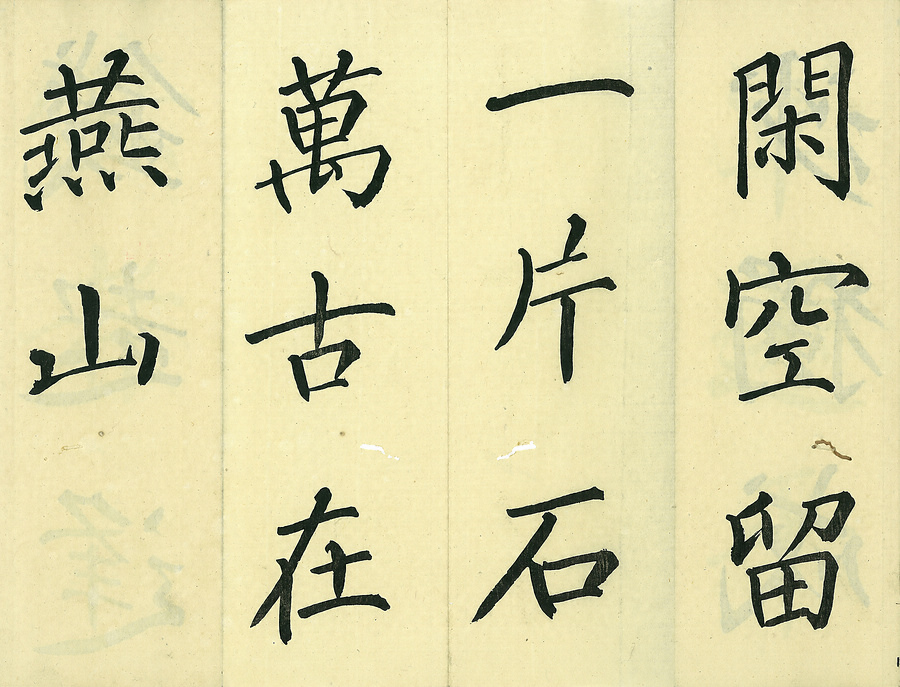 閑空留
一片石
萬古在
燕山